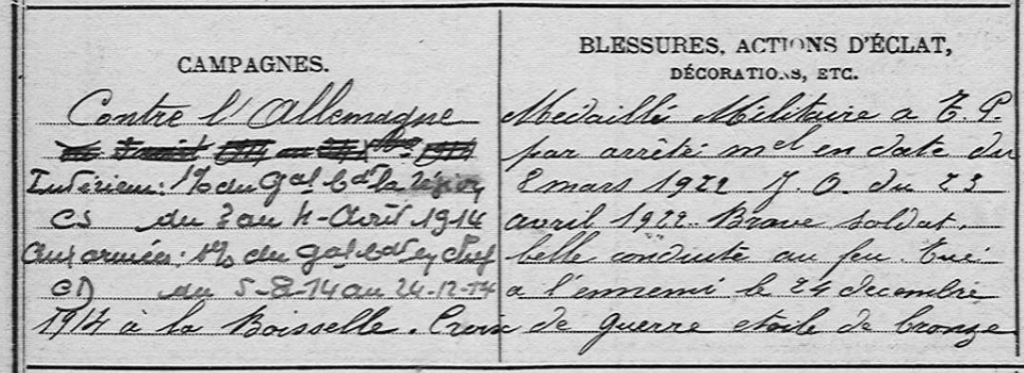 CAMPAGNES.
Contre l'Allemagne
Intérieur: 1% du Gal Cdt la région
CS du 3 au 4 Avril 1914
Aux armées: 1% du Gal Cdt en chef
CD du 5-8-14 au 24-12-14
BLESSURES, ACTIONS D'ÉCLAT,
DÉCORATIONS, ETC.
Médaillé Militaire a T. P.
par arrêté mel en date du
8 mars 1922 J. O. du 23
avril 1922. Brave soldat,
belle conduite au feu. Tué
a l'ennemi le 24 décembre
1914 à la Boisselle. Croix de guerre etoile de bronze